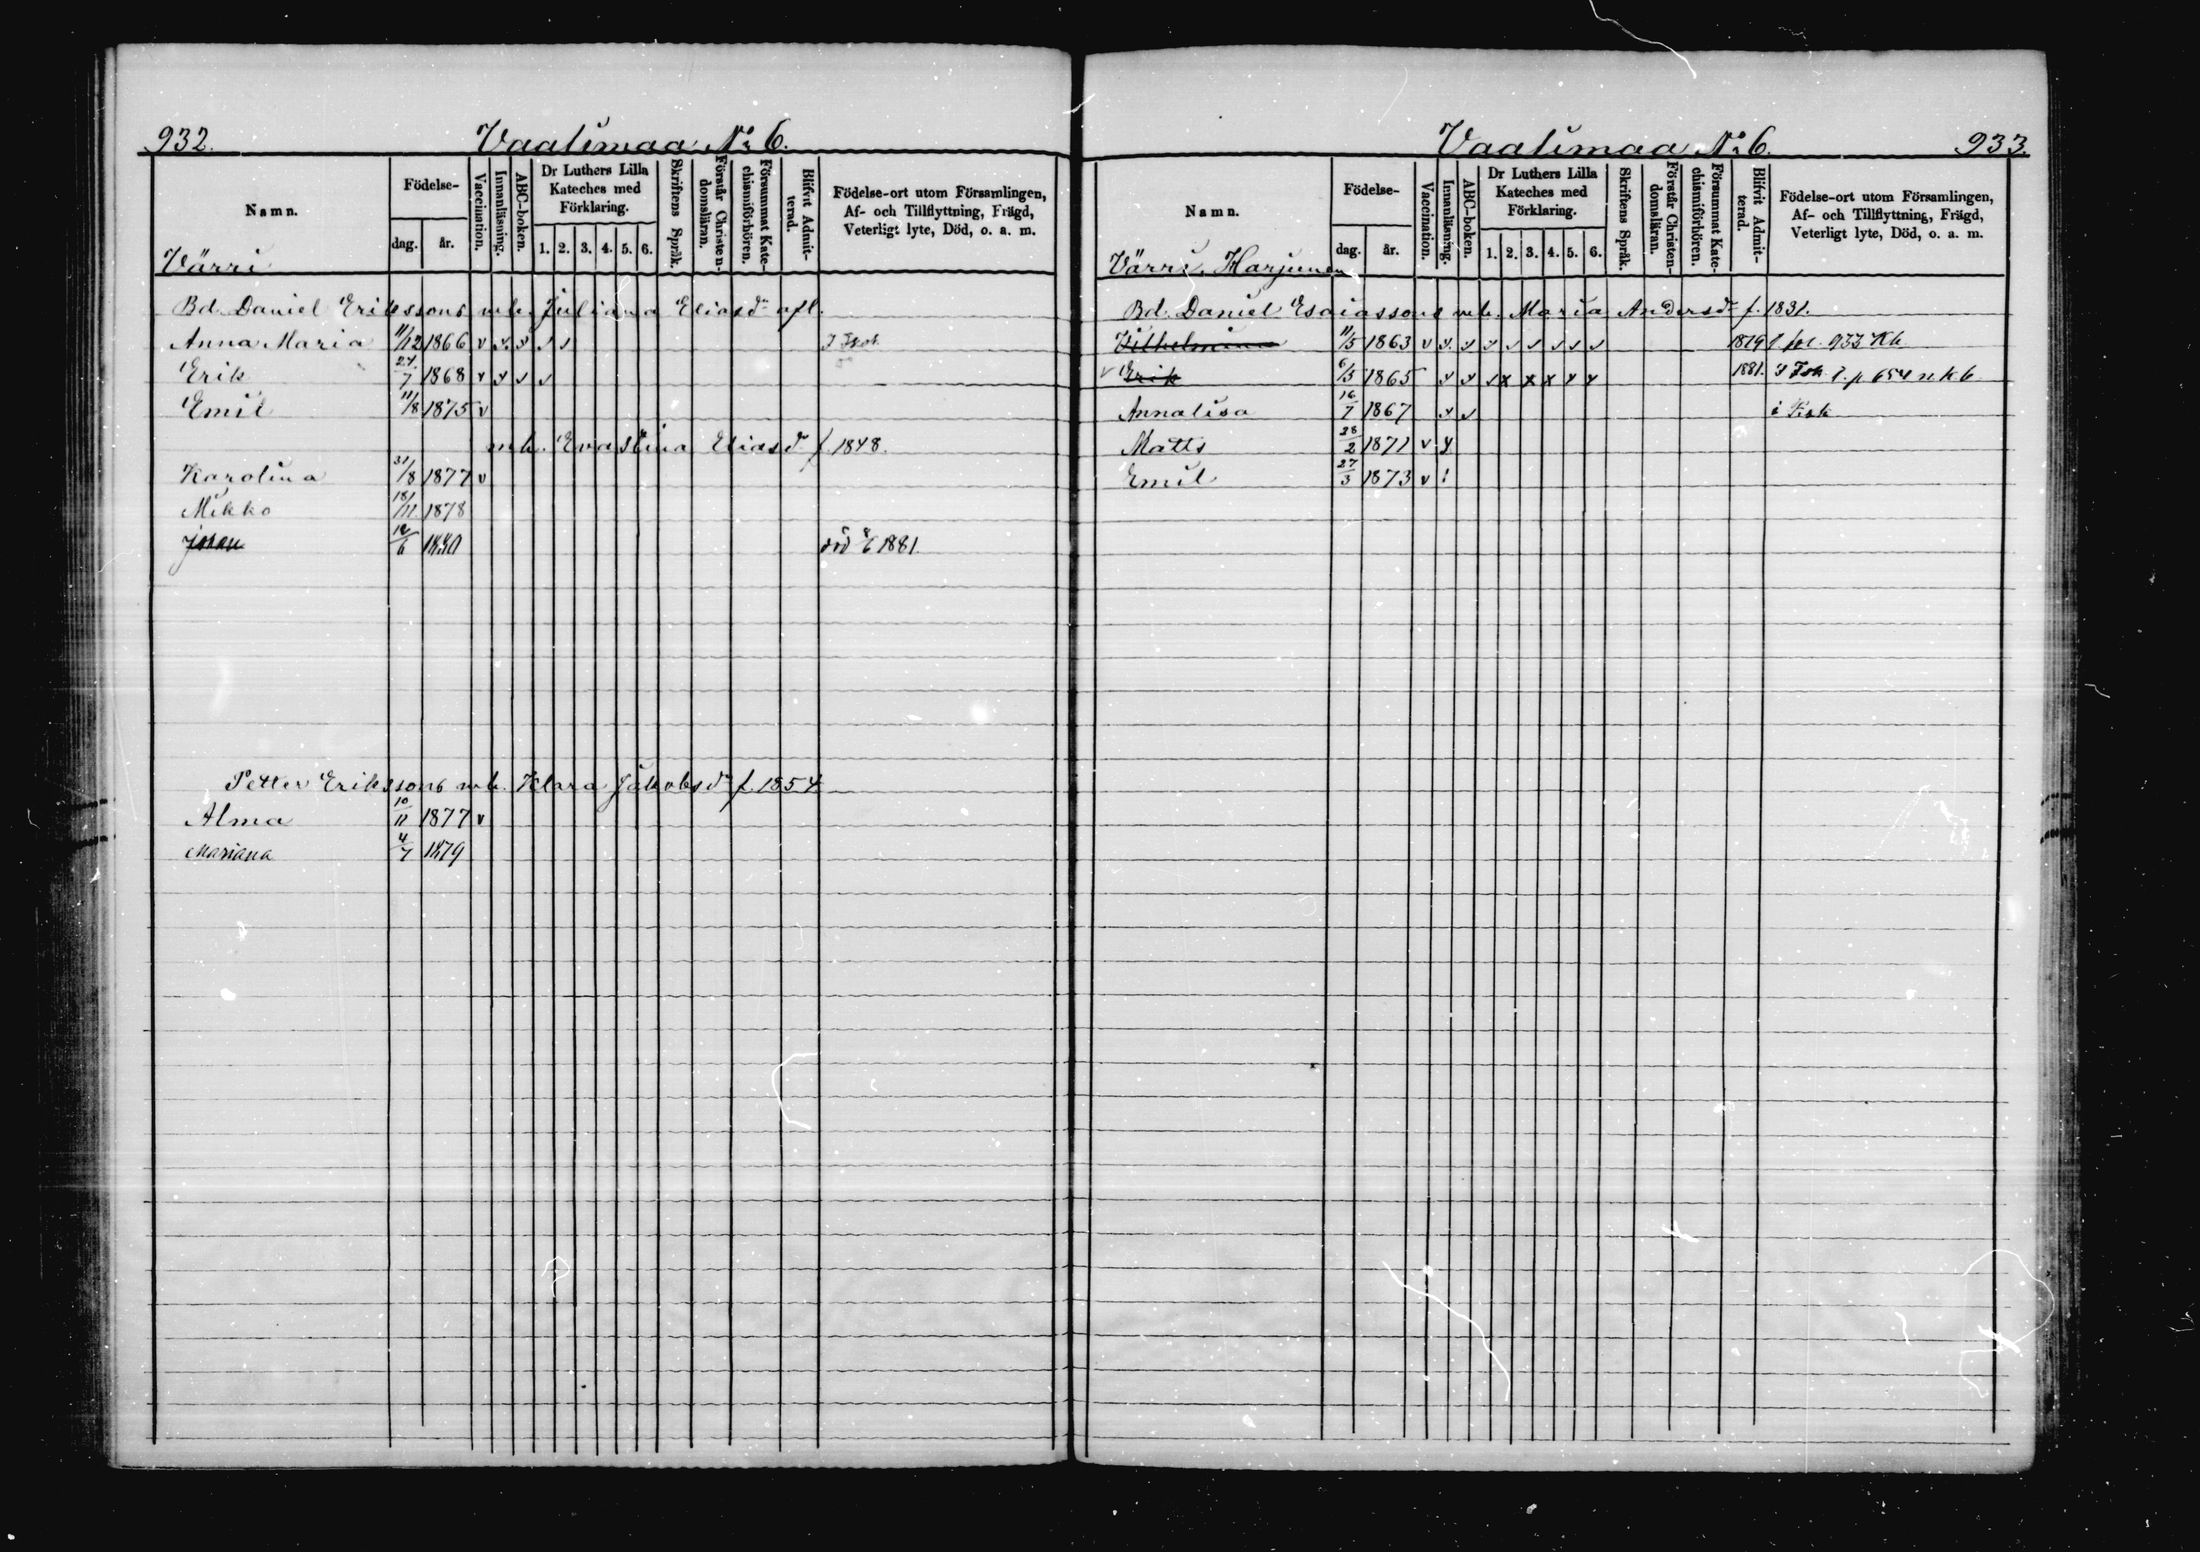 932. Vaalimaa No 6.
Namn. Födelse- dag. år. Vaccination. Innanläsning. ABC-boken. Dr Luthers Lilla Kateches med Förklaring. 1. 2. 3. 4. 5. 6. Skriftens Språk. Förstår Christendomsläran. Försummat Katechismiförhören. Blifvit Admitterad. Födelse-ort utom Församlingen, Af- och Tillflyttning, Frägd, Veterligt lyte, Död, o. a. m.
Värri
Bd. Daniel Erikssons m.h. Juliana Eliasdr afl.
Anna Maria 11/12 1866 v v. v v v
Erik 24/7 1868 v v v v
Emil 11/8 1875 v
m.h. Evastina Eliasdr f. 1848.
Karolina 31/8 1877 v
Mikko 18/11. 1878
Johan 12/6 1880 död 8/6 1881.
Petter Erikssons m.h. Klara Jakobsdr f. 1854
Alma 10/11 1877 v
Mariana 4/7 1879
Vaalimaa No 6. 933.
Namn. Födelse- dag. år. Vaccination. Innanläsning. ABC-boken. Dr Luthers Lilla Kateches med Förklaring. 1. 2. 3. 4. 5. 6. Skriftens Språk. Förstår Christendomsläran. Försummat Katechismiförhören. Blifvit Admitterad. Födelse-ort utom Församlingen, Af- och Tillflyttning, Frägd, Veterligt lyte, Död, o. a. m.
Värri, Harjunen
Bd. Daniel Esaiassons m.h. Maria Andersdr f. 1831.
Vilhelmina 11/5 1863 v v. v v v v v v v 1879 933 Kb
v Erik 6/5 1865 v v v x x x x x 1881. p 654 n. k b.
Annalisa 16/7 1867 v v
Matts 28/2 1871 v y
Emil 27/3 1873 v !